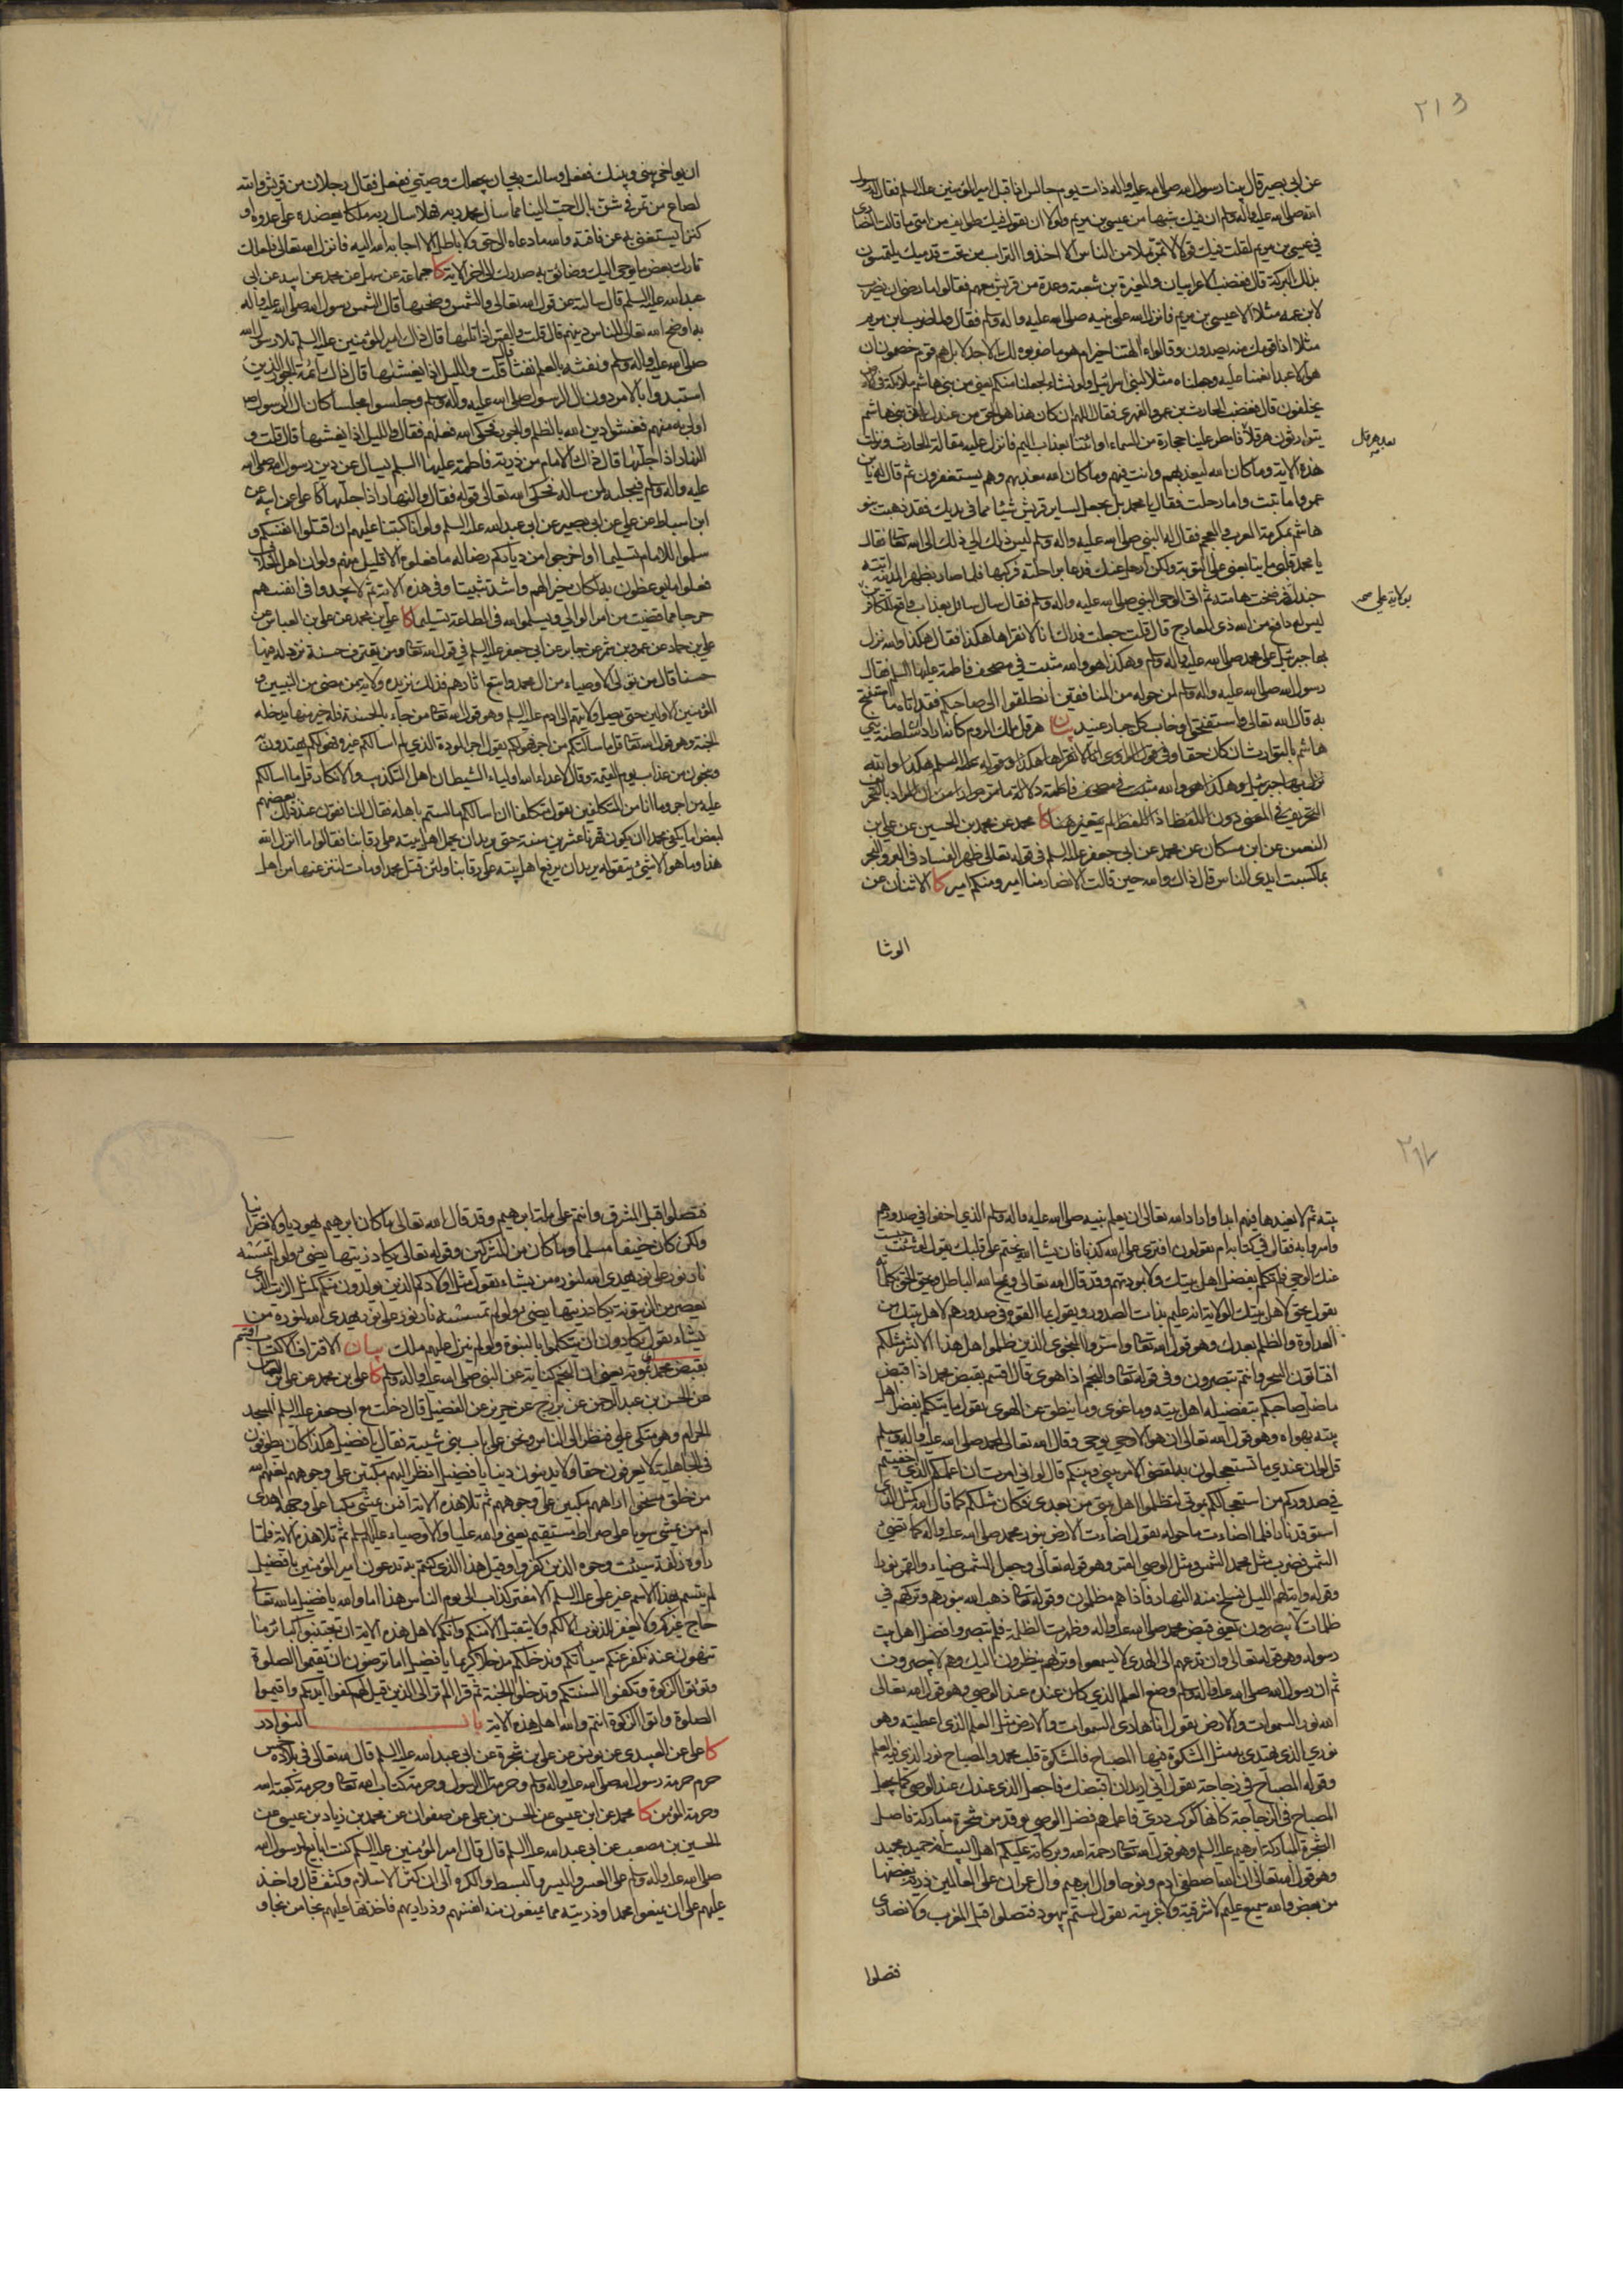 ٢١٥
عن ابى بصير قال بينا رسول الله صلى الله عليه واله ذات يوم جالس اذا قبل امير المؤمنين عليه السلم فقال له رسول
الله صلى الله عليه واله وسلم ان فيك شبها من عيسى بن مريم ولولا ان يقول فيك طوايف من امتى ما قالت النصارى
فى عيسى بن مريم لقلت فيك قولا لا تمر بملا من الناس الا اخذوا التراب من تحت قدميك يلتمسون
بذلك البركة قال فغضب الاعرابيان والمغيرة بن شعبة وعدة من قريش معهم فقالوا ما رضى ان يضرب
لابن عمه مثلا الا عيسى بن مريم فانزل الله على نبيه صلى الله عليه واله وسلم فقال ولما ضرب ابن مريم
مثلا اذا قومك منه يصدون وقالواء الهتنا خير ام هو ما ضربوه لك الا جدلا بل هم قوم خصمون ان
هو الا عبد انعمنا عليه وجعلناه مثلا لبنى اسرائيل ولو نشاء لجعلنا منكم يعنى من بنى هاشم ملائكة فى الارض
يخلفون قال فغضب الحارث بن عمرو الفهرى فقال اللهم ان كان هذا هو الحق من عندك ان بنى هاشم
يتوارثون هرقلا فامطر علينا حجارة من السماء اوائتنا بعذاب اليم فانزل عليه مقالة الحارث ونزلت
هذه الاية وما كان الله ليعذبهم وانت فيهم وما كان الله معذبهم وهم يستغفرون ثم قال له يا بن
عمرو اما تبت واما رحلت فقال يا محمد بل تجعل لساير قريش شيئا مما فى يديك فقد ذهبت بنو
هاشم بمكرمة العرب والعجم فقال له النبى صلى الله عليه واله وسلم ليس ذلك الى ذلك الى الله تعالى فقال
يا محمد قلبى ما يتابعنى على التوبة ولكن ارحل عنك فدعا براحلته فركبها فلما صار بظهر المدينة اتته
جندلة فرضخت هامته ثم اتى الوحى النبى صلى الله عليه واله وسلم فقال سال سائل بعذاب واقع للكافرين
ليس له دافع من الله ذى المعارج قال قلت جعلت فداك انا لا نقراها هكذا فقال هكذا والله نزل
بها جبرئيل على محمد صلى الله عليه واله وسلم وهكذا هو والله مثبت فى مصحف فاطمة عليها السلم فقال
رسول الله صلى الله عليه واله وسلم لمن حوله من المنافقين انطلقوا الى صاحبكم فقد اتاه ما استفتح
به قال الله تعالى واستفتحوا وخاب كل جبار عنيد بيان هرقل ملك الروم كانه اراد ان سلطنة بنى
هاشم بالتوارث ان كان حقا وفى قول الراوى انا لا نقراها هكذا وقوله عليه السلم هكذا والله
نزل بها جبرئيل وهكذا هو والله مثبت فى مصحف فاطمة دلالة ما على ان المراد بالتحريف
التحريف فى المعنى دون اللفظ اذ اللفظ لم يتغير هنا كا محمد عن محمد بن الحسين عن على بن
النعمن عن ابن مسكان عن محمد عن ابى جعفر عليه السلم فى قوله تعالى ظهر الفساد فى البر والبحر
بما كسبت ايدى الناس قال ذاك والله حين قالت الانصار منا امير ومنكم امير كا الاثنان عن
الوشا
ان يواخى بينى وبينك ففعل وسالت ربى ان يجعلك وصيتى ففعل فقال رجلان من قريش والله
لصاع من تمر فى شن بال احب الينا مما سأل محمد ربه فهلا سال ربه ملكا يعضده على عدوه او
كنزا يستغنى به عن فاقته والله ما دعاه الى حق ولا باطل الا اجابه الله اليه فانزل الله تعالى فلعلك
تارك بعض ما يوحى اليك وضائق به صدرك الى اخر الاية كا جماعة عن سهل عن محمد عن ابيه عن ابى
عبدالله عليه السلم قال سالته عن قول الله تعالى والشمس وضحيها قال الشمس رسول الله صلى الله عليه واله
به اوضح الله تعالى للناس دينهم قال قلت والقمر اذا تليها قال ذاك امير المؤمنين عليه السلم تلا رسول الله
صلى الله عليه واله وسلم ونفثه بالعلم نفثا قال قلت والليل اذا يغشيها قال ذاك ائمة الجور الذين
استبدوا بالامر دون ال الرسول صلى الله عليه واله وسلم وجلسوا مجلسا كان ال الرسول
اولى به منهم فغشوا دين الله بالظلم والجور فحكى الله فعلهم فقال والليل اذا يغشيها قال قلت و
النهار اذا جليها قال ذاك الامام من ذرية فاطمة عليها السلم يسال عن دين رسول الله صلى الله
عليه واله وسلم فيجليه لمن ساله فحكى الله تعالى قوله فقال والنهار اذا جليها كا على عن ابيه عن
ابن اسباط عن على عن ابى بصير عن ابى عبدالله عليه السلم ولو انا كتبنا عليهم ان اقتلوا انفسكم و
سلموا للامام تسليما او اخرجوا من دياركم رضا له ما فعلوه الا قليل منهم ولو ان اهل الخلاف
فعلوا ما يوعظون به لكان خيرا لهم واشد تثبيتا وفى هذه الاية ثم لا يجدوا فى انفسهم
حرجا مما قضيت من امر الوالى ويسلموا لله فى الطاعة تسليما كا على بن محمد عن على بن العباس عن
على بن حماد عن عمرو بن شمر عن جابر عن ابى جعفر عليه السلم فى قول الله تعالى ومن يقترف حسنة نزد له فيها
حسنا قال من تولى الاوصياء من ال محمد واتبع اثارهم فذلك نزيده ولاية من مضى من النبيين و
المؤمنين الاولين حتى يصل ولايتهم الى ادم عليه السلم وهو قول الله تعالى من جاء بالحسنة فله خير منها يدخله
الجنة وهو قول الله تعالى قل ما سالتكم من اجر فهو لكم يقول اجر المودة الذى لم اسالكم غيره فهو لكم يهتدون به
وينجون من عذاب يوم القيمة وقال لاعداء الله اولياء الشيطان اهل التكذيب والانكار قل ما اسالكم
عليه من اجر وما انا من المتكلفين يقول متكلفا ان اسالكم ما لستم باهله فقال المنافقون عند ذلك بعضهم
لبعض اما يكفى محمدا ان يكون قهرنا عشرين سنة حتى يريد ان يحمل اهل بيته على رقابنا فقالوا ما انزل الله
هذا وما هو الا شئ يتقوله يريد ان يرفع اهل بيته على رقابنا ولئن قتل محمد او مات لننزعنها من اهل
بيته ثم لا نعيدها فيهم ابدا واراد الله تعالى ان يعلم نبيه صلى الله عليه واله وسلم الذى اخفوا فى صدورهم
واسروا به فقال فى كتابه ام يقولون افترى على الله كذبا فان يشا الله يختم على قلبك يقول لو شئت حبست
عنك الوحى فلم تكلم بفضل اهل بيتك ولا بمودتهم وقد قال الله تعالى ويمحو الله الباطل ويحق الحق بكلماته
يقول يحق لاهل بيتك الولاية انه عليم بذات الصدور ويقول بما القوه فى صدورهم لاهل بيتك من
العداوة والظلم بعدك وهو قول الله تعالى واسروا النجوى الذين ظلموا هل هذا الا بشر مثلكم
افتاتون السحر وانتم تبصرون وفى قوله تعالى والنجم اذا هوى قال اقسم بقبض محمد اذا قبض
ما ضل صاحبكم بتفضيله اهل بيته وما غوى وما ينطق عن الهوى يقول ما يتكلم بفضل اهل
بيته بهواه وهو قول الله تعالى ان هو الا وحى يوحى وقال الله تعالى لمحمد صلى الله عليه واله وسلم
قل لو ان عندى ما تستعجلون به لقضى الامر بينى وبينكم قال لو انى امرت ان اعلمكم الذى اخفيتم
فى صدوركم من استعجالكم بموتى لتظلموا اهل بيتى من بعدى فكان مثلكم كما قال الله كمثل الذى
استوقد نارا فلما اضاءت ما حوله يقول اضاءت الارض بنور محمد صلى الله عليه واله كما تضئ
الشمس فضرب مثل محمد الشمس ومثل الوصى القمر وهو قوله تعالى وجعل الشمس ضياء والقمر نورا
وقوله واية لهم الليل نسلخ منه النهار فاذا هم مظلمون وقوله تعالى ذهب الله بنورهم وتركهم فى
ظلمات لا يبصرون يعنى قبض محمد صلى الله عليه واله وظهرت الظلمة فلم يبصروا فضل اهل بيت
رسوله وهو قوله تعالى وان تدعهم الى الهدى لا يسمعوا وتريهم ينظرون اليك وهم لا يبصرون
ثم ان رسول الله صلى الله عليه واله وسلم وضع العلم الذى كان عنده عند الوصى وهو قول الله تعالى
الله نور السموات والارض يقول انا هادى السموات والارض مثل العلم الذى اعطيته وهو
نورى الذى يهتدى به مثل المشكوة فيها المصباح فالمشكوة قلب محمد والمصباح نوره الذى فيه العلم
وقوله المصباح فى زجاجة يقول انى اريد ان اقبضك فاجعل الذى عندك عند الوصى كما يجعل
المصباح فى الزجاجة كانها كوكب درى فاعلمهم فضل الوصى يوقد من شجرة مباركة فاصل
الشجرة المباركة ابرهيم عليه السلم وهو قول الله تعالى رحمة الله وبركاته عليكم اهل البيت انه حميد مجيد
وهو قول الله تعالى ان الله اصطفى ادم ونوحا وال ابرهيم وال عمران على العالمين ذرية بعضها
من بعض والله سميع عليم لا شرقية ولا غربية يقول لستم بيهود فتصلوا قبل المغرب ولا نصارى
فتصلوا
فتصلوا قبل المشرق وانتم على ملة ابرهيم وقد قال الله تعالى ما كان ابرهيم يهوديا ولا نصرانيا
ولكن كان حنيفا مسلما وما كان من المشركين وقوله تعالى يكاد زيتها يضئ ولو لم تمسسه
نار نور على نور يهدى الله لنوره من يشاء يقول مثل اولادكم الذين يولدون منكم كمثل الزيت الذى
يعصر من الزيتونة يكاد زيتها يضئ ولو لم تمسسه نار نور على نور يهدى الله لنوره من
يشاء يقول يكادون ان يتكلموا بالنبوة ولو لم ينزل عليهم ملك بيان الاقتراف الاكتساب اقسم
بقبض محمد بموته يعنى ان النجم كناية عن النبى صلى الله عليه واله وسلم كا على بن محمد عن على بن العباس
عن الحسن بن عبد الرحمن عن بزرج عن حريز عن الفضيل قال دخلت مع ابى جعفر عليه السلم المسجد
الحرام وهو متكئ على فنظر الى الناس ونحن على باب بنى شيبة فقال يا فضيل هكذا كان يطوفون
فى الجاهلية لا يعرفون حقا ولا يدينون دينا يا فضيل انظر اليهم مكبين على وجوههم لعنهم الله
من خلق مسخوا اراهم مكبين على وجوههم ثم تلا هذه الاية افمن يمشى مكبا على وجهه اهدى
ام من يمشى سويا على صراط مستقيم يعنى والله عليا والاوصياء عليهم السلم ثم تلا هذه الاية فلما
راوه زلفة سيئت وجوه الذين كفروا وقيل هذا الذى كنتم به تدعون امير المؤمنين يا فضيل
لم يتسم بهذا الاسم غير على عليه السلم الا مفتر كذاب الى يوم الناس هذا اما والله يا فضيل ما لله تعالى
حاج غيركم ولا يغفر الذنوب الا لكم ولا يتقبل الا منكم وانكم لاهل هذه الاية ان تجتنبوا كبائر ما
تنهون عنه نكفر عنكم سيئاتكم وندخلكم مدخلا كريما يا فضيل اما ترضون ان تقيموا الصلوة
وتوتوا الزكوة وتكفوا السنتكم وتدخلوا الجنة ثم قرا الم تر الى الذين قيل لهم كفوا ايديكم واقيموا
الصلوة واتوا الزكوة انتم والله اهل هذه الاية باب النوادر
كا على عن العبيدى عن يونس عن على بن شجرة عن ابى عبدالله عليه السلم قال لله تعالى فى بلاده خمس
حرم حرمة رسول الله صلى الله عليه واله وسلم وحرمة ال الرسول وحرمة كتاب الله تعالى وحرمة كعبة الله
وحرمة المؤمن كا محمد عن ابن عيسى عن الحسن بن على عن صفوان عن محمد بن زياد بن عيسى عن
الحسين بن مصعب عن ابى عبدالله عليه السلم قال قال امير المؤمنين عليه السلم كنت ابايع لرسول الله
صلى الله عليه واله وسلم على العسر واليسر والبسط والكره الى ان كثر الاسلام وكثف قال واخذ
عليهم على ان يمنعوا محمدا وذريته مما يمنعون منه انفسهم وذراريهم فاخذتها عليهم نجا من نجا و